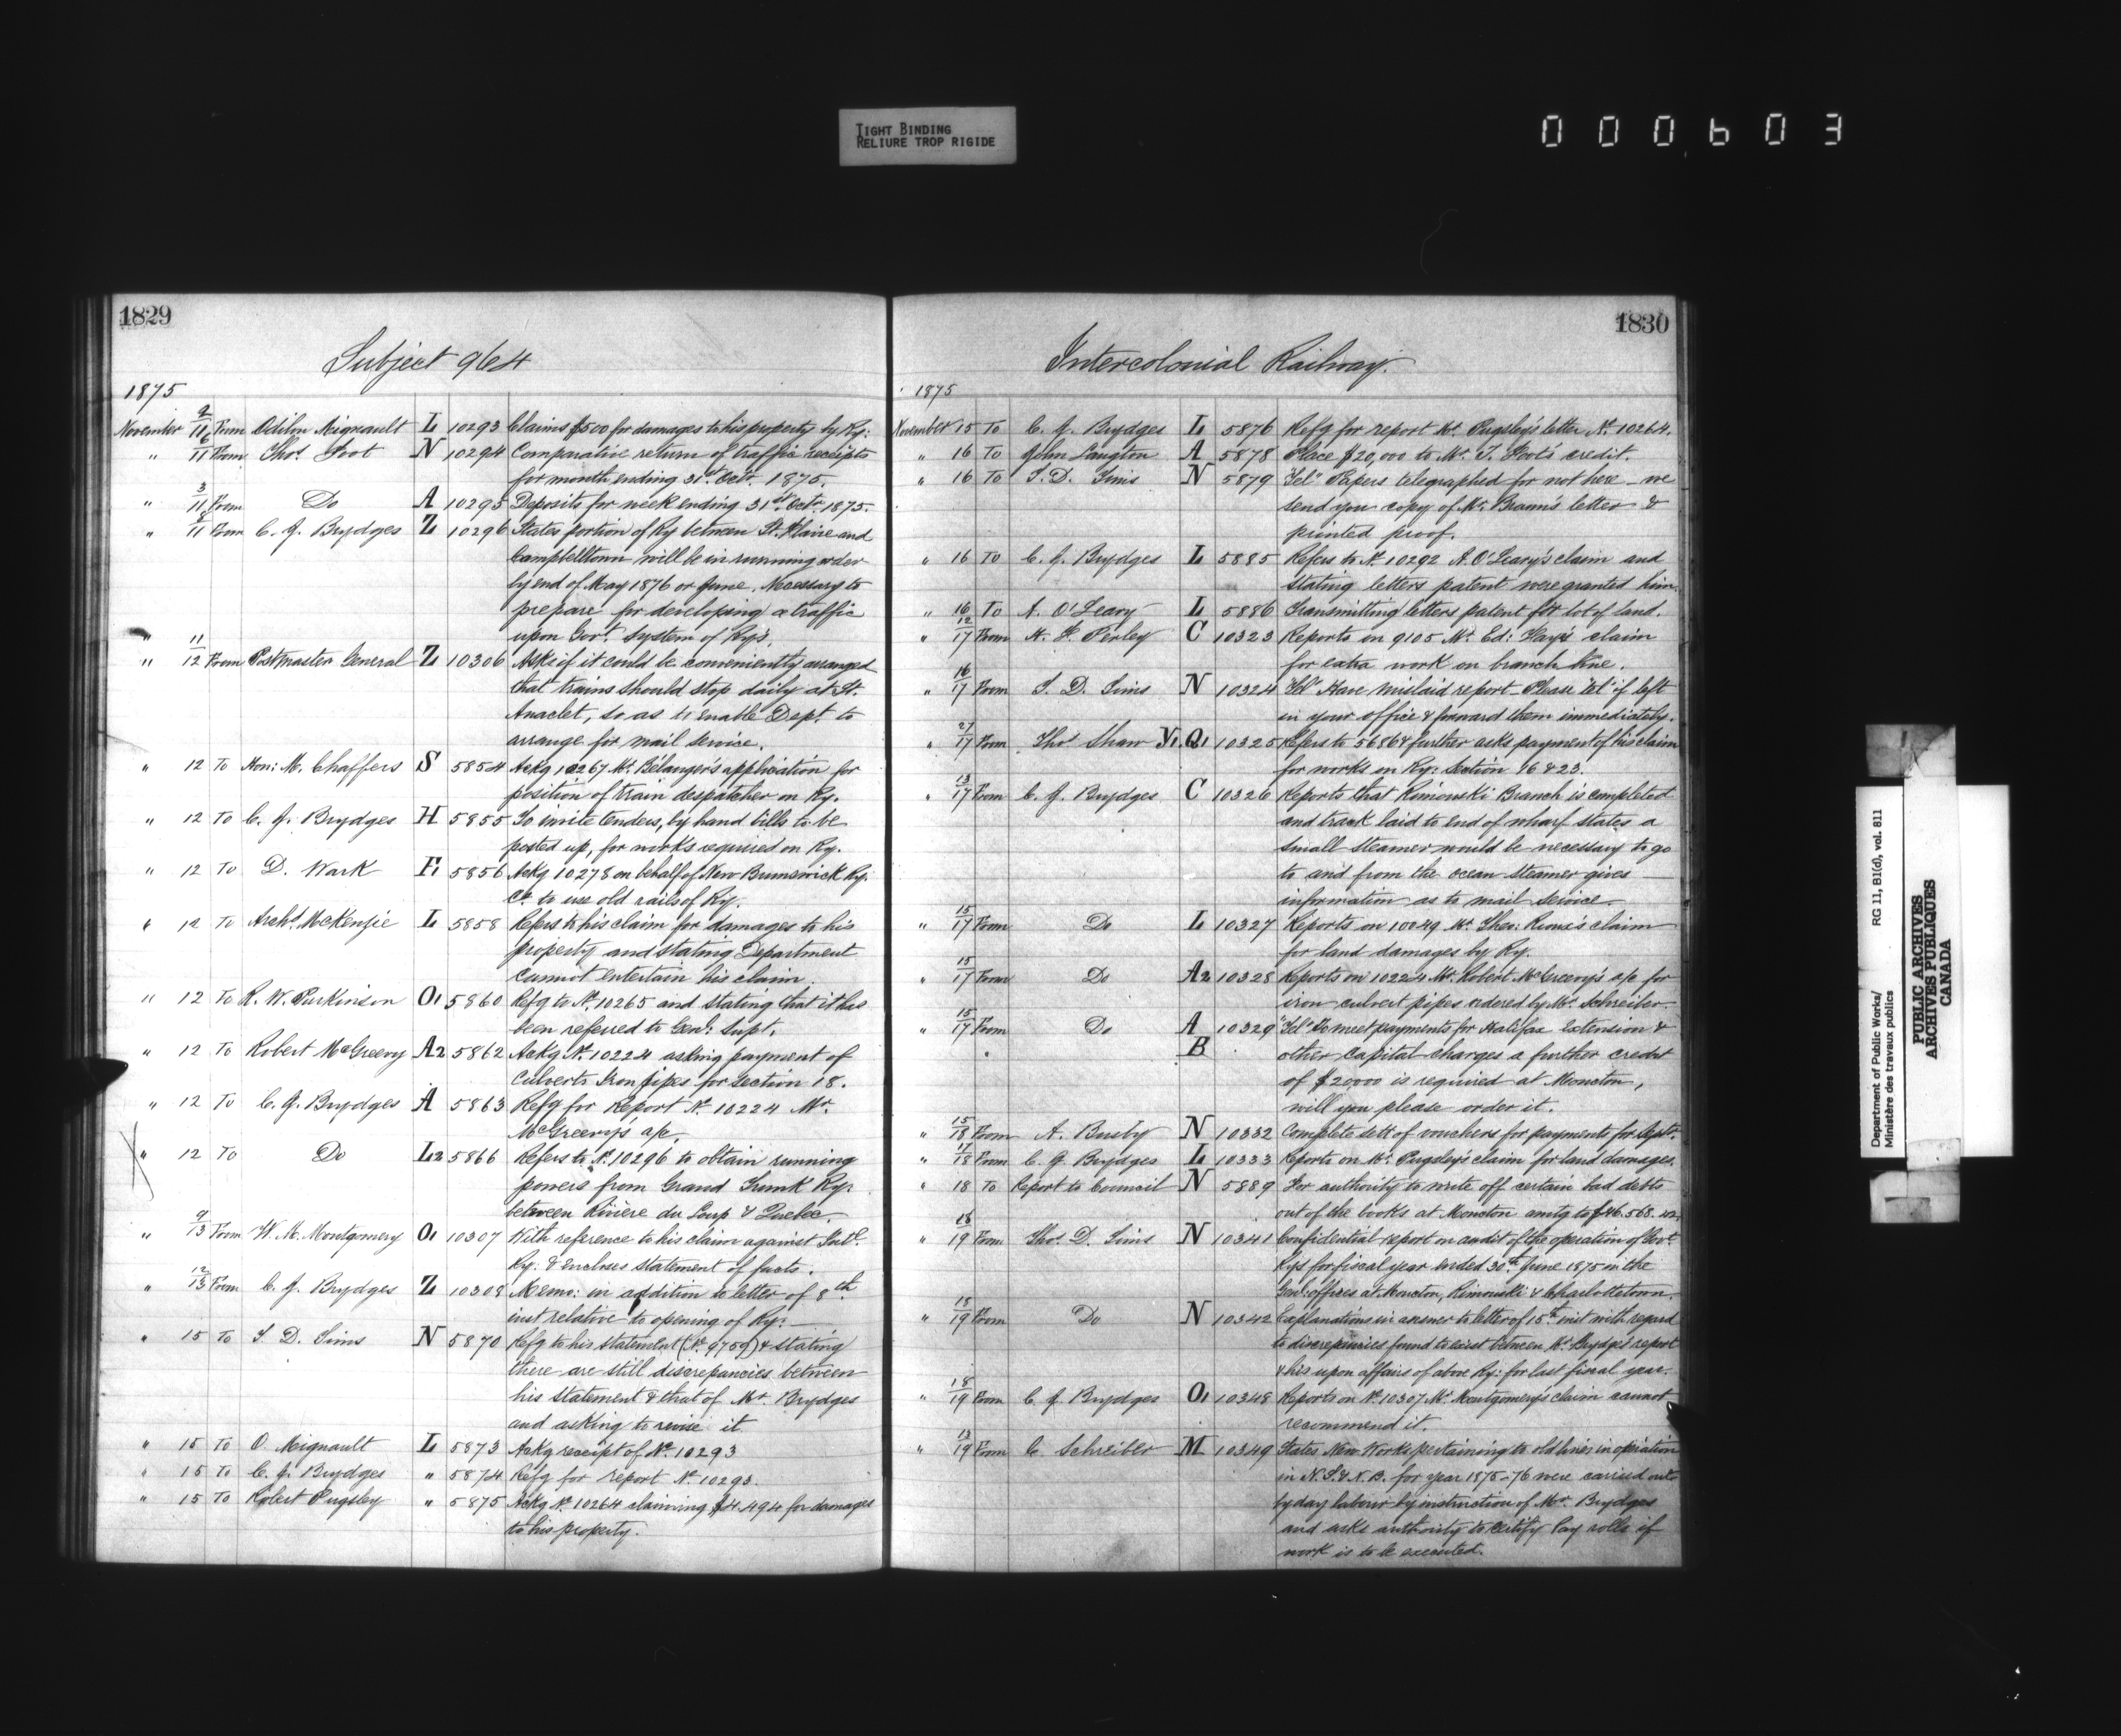 TIGHT BINDING
RELIURE TROP RIGIDE
000603
1829
Subject 964
1875
November 9/11 From Odilon Mignault L 10293 Claims $500 for damages to his property by Ry:
" 6/11 From Thos. Foot N 10294 Comparative return of traffic receipts
for month ending 31st Octr. 1875.
" 3/11 From Do A 10295 Deposits for week ending 31st Octr. 1875.
" 8/11 From C. J. Brydges Z 10296 States portion of Ry between St. Flavie and
Campbelltown will be in running order
by end of May 1876 or June. Necessary to
prepare for developing a traffic
upon Govt. System of Rys,
" 11/12 From Postmaster General Z 10306 Asks if it could be conveniently arranged
that trains should stop daily at St.
Anaclet, so as to enable Dept. to
arrange for mail service.
" 12 To Hon: M. Chaffers S 5854 Ackg 10267 Mr. Bélanger's application for
position of train despatcher on Ry.
" 12 To C. J. Brydges H 5855 To invite tenders, by hand bills to be
posted up, for works required on Ry.
" 12 To D. Wark F1 5856 Ackg 10278 on behalf of New Brunswick Ry.
Co. to use old rails of Ry.
" 12 To Archd. McKenzie L 5858 Refers to his claim for damages to his
property and stating Department
cannot entertain his claim.
" 12 To R. W. Purkinson O1 5860 Refg to No. 10265 and stating that it has
been referred to Genl: Supt.
" 12 To Robert McGreevy A2 5862 Ackg No. 10224 asking payment of
Culverts Iron pipes for section 18.
" 12 To C. J. Brydges A 5863 Refg for Report No. 10224 Mr.
McGreevy's a/c.
" 12 To Do L2 5866 Refers to No. 10296 to obtain running
powers from Grand Trunk Ry:
between Rivière du Loup & Quebec.
" 9/13 From W. M. Montgomery O1 10307 With reference to his claim against Intl.
Ry: & encloses statement of facts.
" 12/13 From C. J. Brydges Z 10308 Memo: in addition to letter of 8th
inst relative to opening of Ry:
" 15 To T. D. Tims N 5870 Refg to his statement (No. 9759) & stating
there are still discrepancies between
his statement & that of Mr. Brydges
and asking to revise it
" 15 To O. Mignault L 5873 Ackg receipt of No. 10293
" 15 To C. J. Brydges " 5874 Refg for report No. 10293.
" 15 To Robert Pugsley " 5875 Ackg No. 10264 claiming $4.494 for damages
to his property.
1830
Intercolonial Railway.
1875
November 15 To C. J. Brydges L 5876 Refg for report Mr. Pugsley's letter No. 10264.
" 16 To John Langton A 5878 Place $20,000 to Mr. T. Foot's credit.
" 16 To T. D. Tims N 5879 "Tel" Papers telegraphed for not here we
send you copy of Mr. Braun's letter &
printed proof.
" 16 To C. J. Brydges L 5885 Refers to No. 10292 A. O'Leary's claim and
stating letters patent were granted him
" 16 To A. O'Leary L 5886 Transmitting letters patent for lot of land.
" 12/17 From H. F. Perley C 10323 Reports on 9105 Mr. Ed: Hay's claim
for extra work on branch line.
" 16/17 From T. D. Tims N 10324 "Tel" Have mislaid report Please tel if left
in your office & forward them immediately.
" 27/17 From Thos. Shaw Y1.Q1 10325 Refers to 5686 & further asks payment of his claim
for works on Ry: Section 16 & 23.
" 13/17 From C. J. Brydges C 10326 Reports that Rimouski Branch is completed
and track laid to end of wharf states a
small steamer would be necessary to go
to and from the ocean steamer gives
information as to mail service.
" 15/17 From Do L 10327 Reports on 10049 Mr. Theo: Rioux's claim
for land damages by Ry.
" 15/17 From Do A2 10328 Reports on 10224 Mr. Robert McGreevy's a/c for
iron culvert pipes ordered by Mr. Schreiber
" 15/17 From Do A 10329 "Tel" To meet payments for Halifax extension &
B other capital charges a further credit
of $20000 is required at Moncton,
will you please order it.
" 15/18 From A. Busby N 10332 Complete sett of vouchers for payments for Sept.
" 17/18 From C. J. Brydges L 10333 Reports on Mr. Pugsley's claim for land damages.
" 18 To Report to Council N 5889 For authority to write off certain bad debts
out of the books at Moncton amtg to $46.568.
" 18/19 From Thos. D. Tims N 10341 Confidential report on audit of the operation of Govt.
Rys for fiscal year ended 30th June 1875 in the
Genl: offices at Moncton, Rimouski & Charlottetown.
" 18/19 From Do N 10342 Explanations in answer to letter of 15th inst with regard
to discrepancies found to exist between Mr. Brydges' report
& his upon affairs of above Ry: for last fiscal year.
" 18/19 From C. J. Brydges O1 10348 Reports on No. 10307 Mr. Montgomery's claim cannot
recommend it.
" 13/19 From C. Schreiber M 10349 States New Works pertaining to old lines in operation
in N.S. & N.B. for year 1875-76 were carried out
by day labour by instruction of Mr. Brydges
and asks authority to certify Pay rolls if
work is to be executed.
Department of Public Works/ RG 11, B1(d), vol. 811
Ministère des travaux publics
PUBLIC ARCHIVES
ARCHIVES PUBLIQUES
CANADA